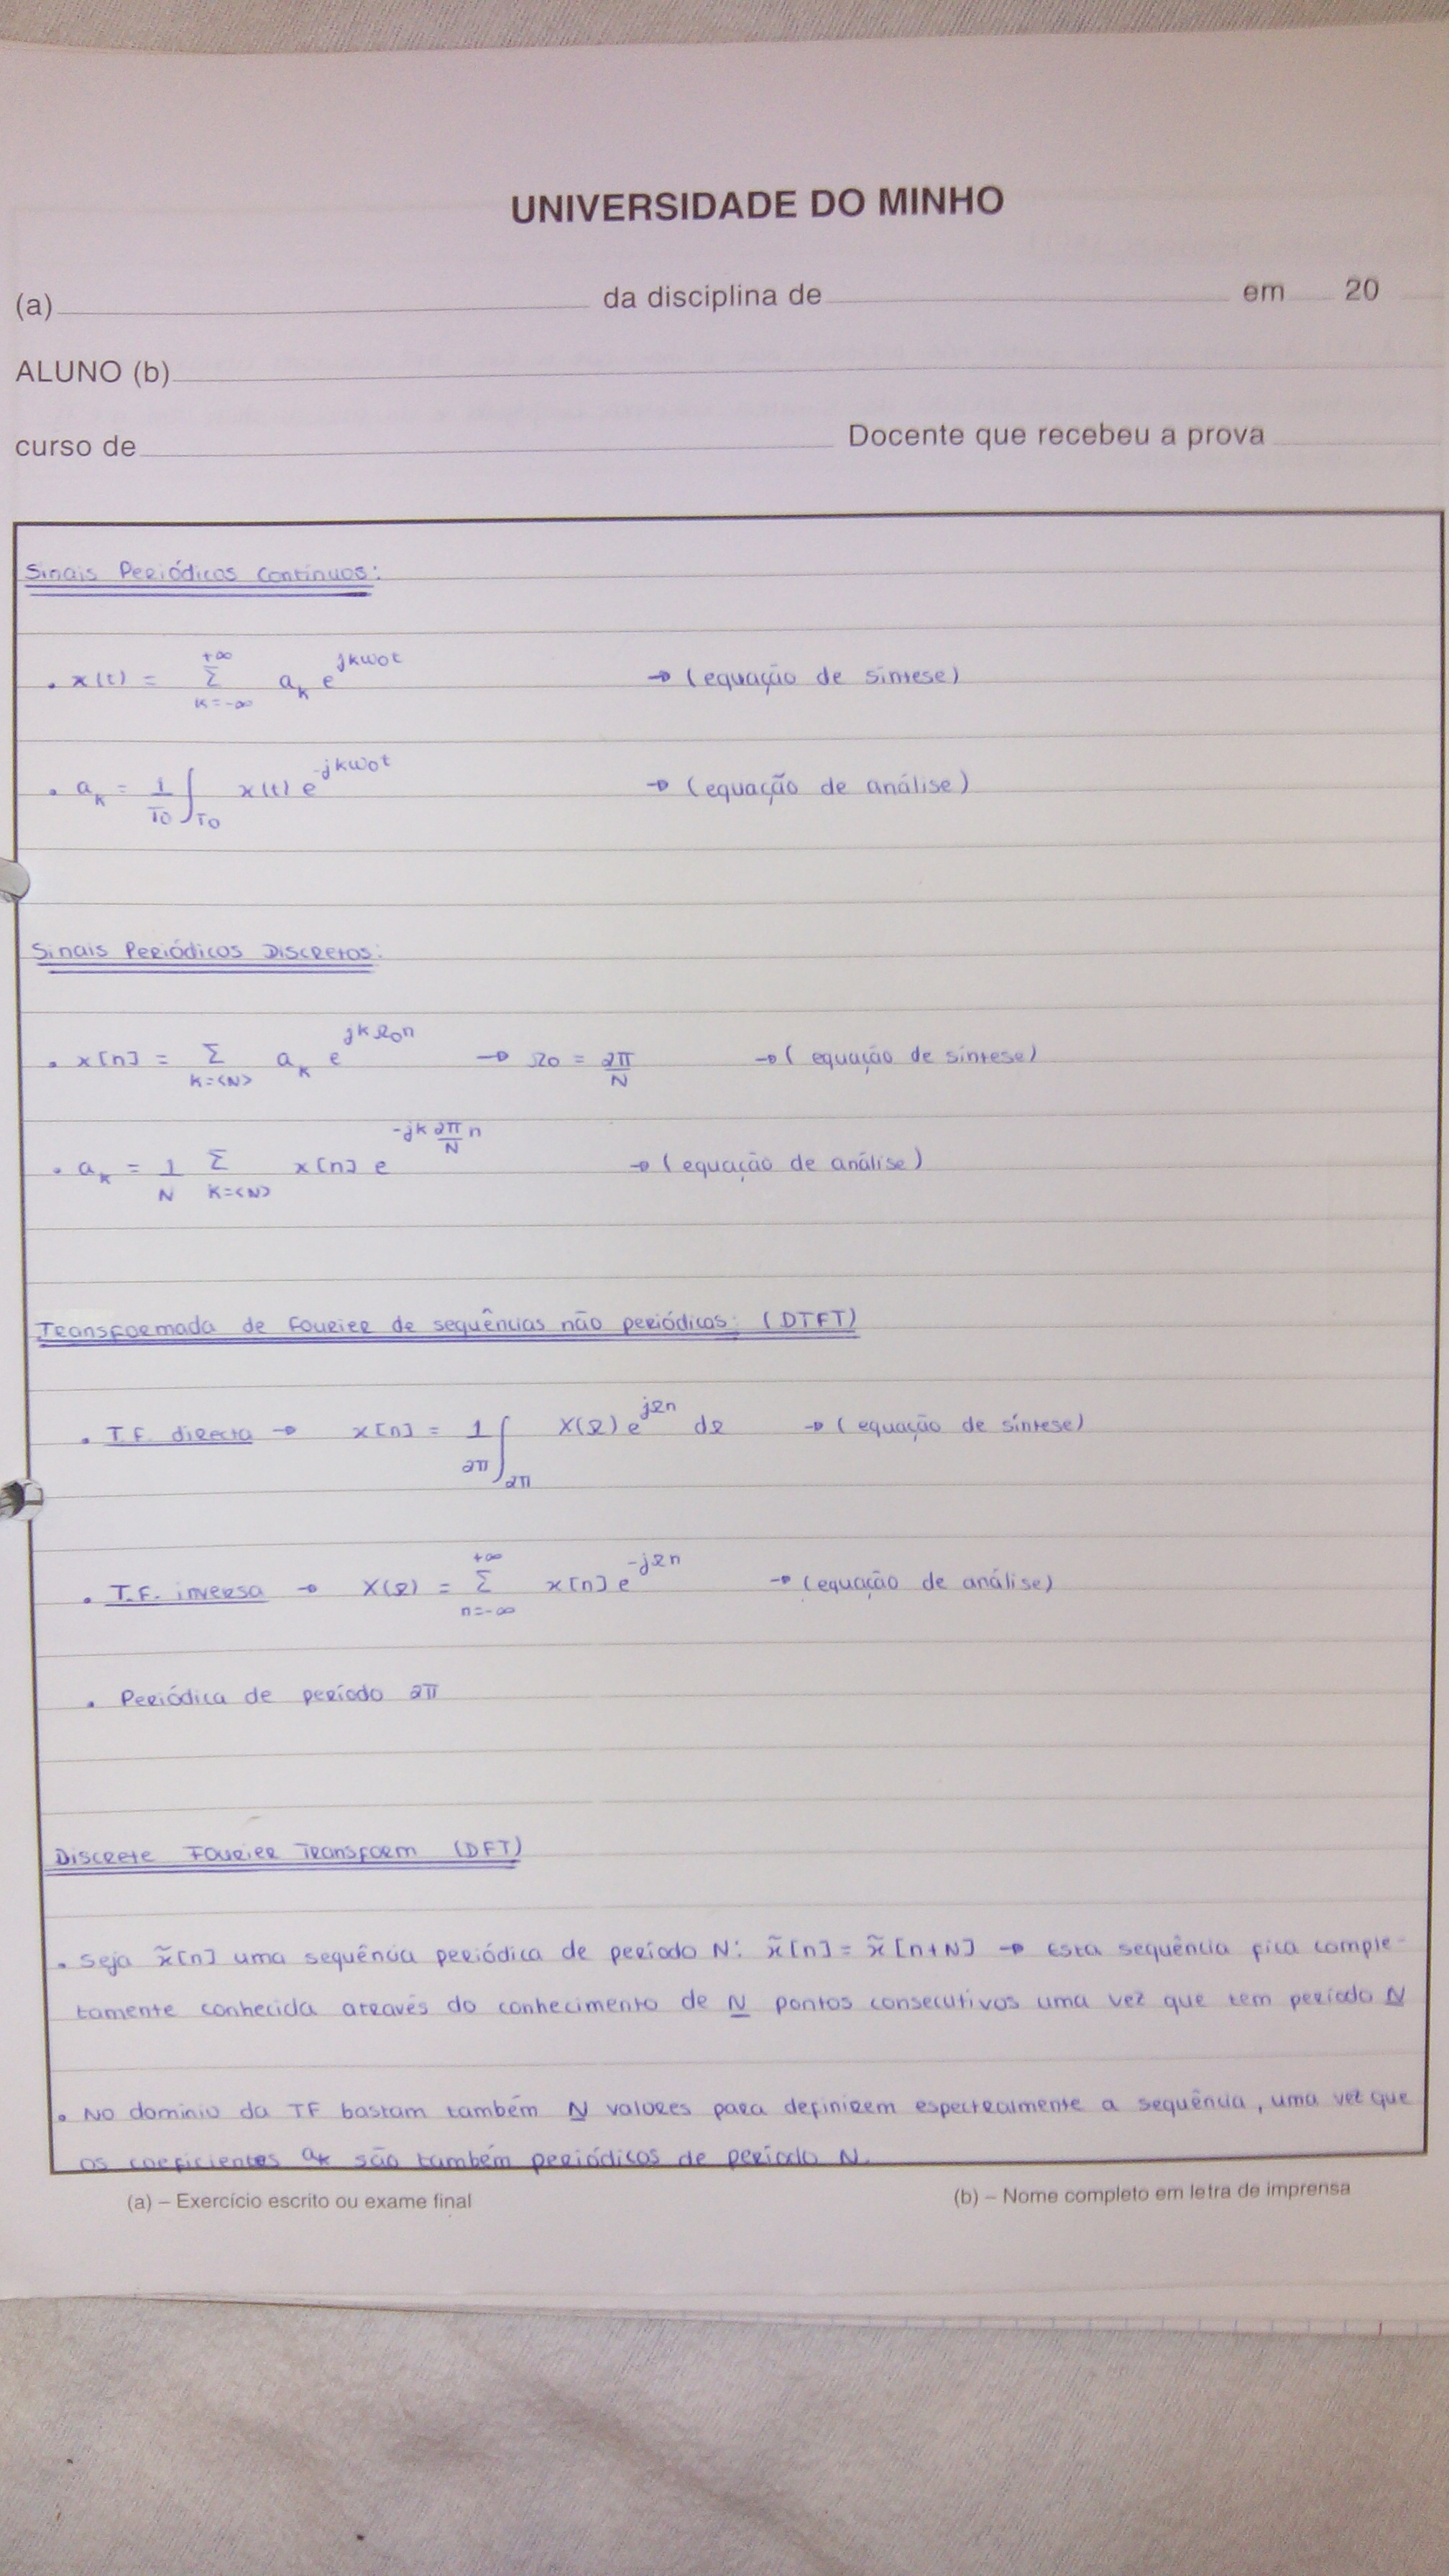 UNIVERSIDADE DO MINHO
(a) da disciplina de em 20
ALUNO (b)
curso de Docente que recebeu a prova
Sinais Periódicos Contínuos:
• x(t) = Σ_{k=-∞}^{+∞} a_k e^{jkω0t} → (equação de síntese)
• a_k = 1/T0 ∫_{T0} x(t) e^{-jkω0t} → (equação de análise)
Sinais Periódicos Discretos:
• x[n] = Σ_{k=<N>} a_k e^{jkΩ0n} → Ω0 = 2π/N → (equação de síntese)
• a_k = 1/N Σ_{k=<N>} x[n] e^{-jk 2π/N n} → (equação de análise)
Transformada de Fourier de sequências não periódicas: (DTFT)
• T.F. directa → x[n] = 1/2π ∫_{2π} X(Ω) e^{jΩn} dΩ → (equação de síntese)
• T.F. inversa → X(Ω) = Σ_{n=-∞}^{+∞} x[n] e^{-jΩn} → (equação de análise)
• Periódica de período 2π
Discrete Fourier Transform (DFT)
• Seja x̃[n] uma sequência periódica de período N: x̃[n] = x̃[n+N] → Esta sequência fica comple-
tamente conhecida através do conhecimento de N pontos consecutivos uma vez que tem período N
• No domínio da TF bastam também N valores para definirem espectralmente a sequência, uma vez que
os coeficientes a_k são também periódicos de período N.
(a) – Exercício escrito ou exame final (b) – Nome completo em letra de imprensa